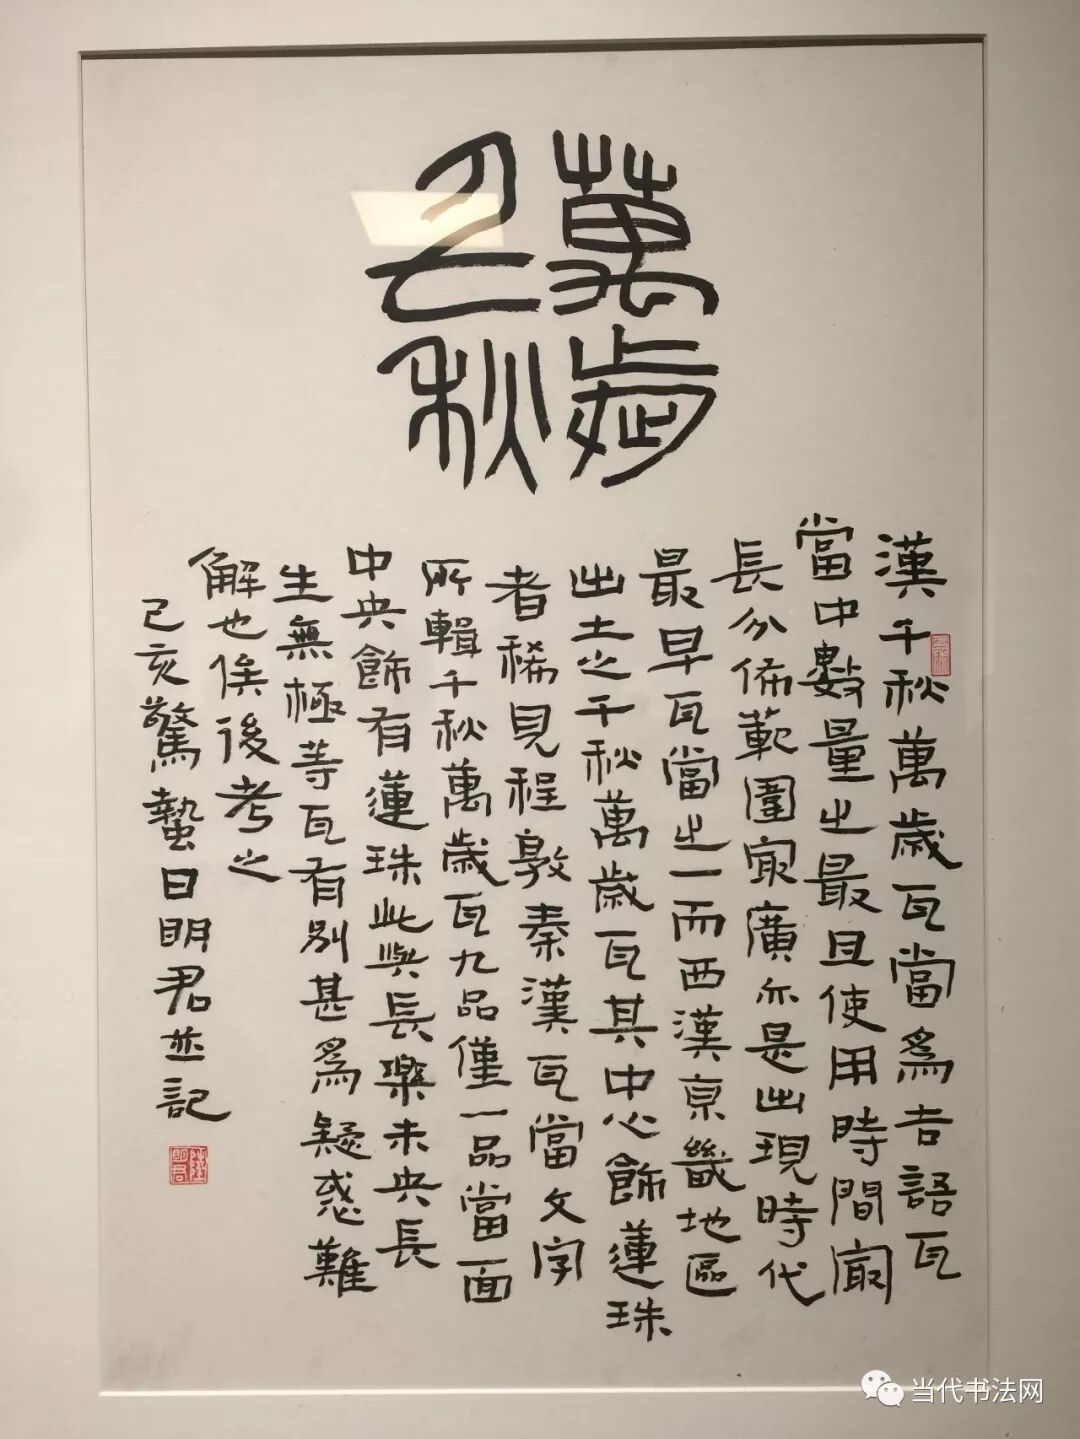 萬歲
千秋
漢千秋萬歲瓦當爲吉語瓦
當中數量之最且使用時間㝡
長分佈範圍㝡廣亦是出現時代
最早瓦當之一而西漢京畿地區
出土之千秋萬歲瓦其中心飾蓮珠
者稀見程敦秦漢瓦當文字
所輯千秋萬歲瓦九品僅一品當面
中央飾有蓮珠此與長樂未央長
生無極等瓦有別甚爲疑惑難
解也俟後考之
己亥驚蟄日明君並記
当代书法网